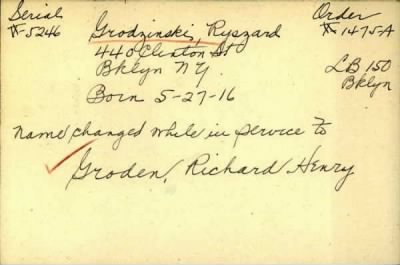 Serial Order
#5246 Grodzinski, Ryszard #1475-A
440 Clinton St
Bklyn NY. LB 150
Born 5-27-16 Bklyn
name changed while in service to
Groden, Richard Henry